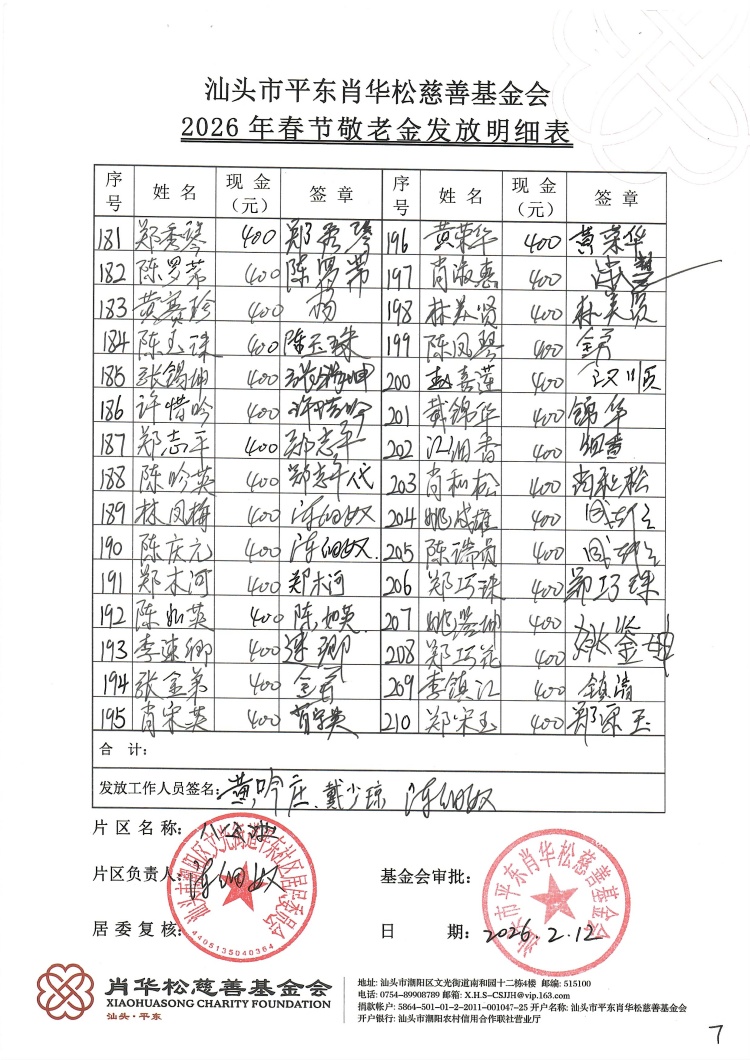 汕头市平东肖华松慈善基金会
2026年春节敬老金发放明细表
序号 姓名 现金（元） 签章 序号 姓名 现金（元） 签章
181 郑秀琴 400 郑秀琴 196 黄荣华 400 黄荣华
182 陈罗蒂 400 陈罗蒂 197 肖海惠 400
183 黄赛珍 400 杨 198 林美贤 400 林美贤
184 陈玉珠 400 陈玉珠 199 陈凤琴 400
185 张锡坤 400 张锡坤 200 赵喜莲 400 汉顺
186 许惜吟 400 许惜吟 201 戴锦华 400 锦华
187 郑志平 400 郑志平 202 江细香 400 细香
188 陈吟英 400 郑志平代 203 肖和松 400 肖和松
189 林凤梅 400 陈细奴 204 姚成雄 400
190 陈庆元 400 陈细奴 205 陈瑞贞 400
191 郑木河 400 郑木河 206 郑巧珠 400 郑巧珠
192 陈如英 400 陈如英 207 姚鉴坤 400 姚鉴坤
193 李速卿 400 速卿 208 郑巧花 400
194 张金弟 400 209 李镇江 400
195 肖宋英 400 肖宋英 210 郑宋玉 400
合 计：
发放工作人员签名： 黄吟庄 戴少琼 陈细奴
片区名称：
片区负责人： 陈细奴 基金会审批：
居委复核： 日 期： 2026.2.12
汕头市潮阳区文光街道平东社区居民委员会
4405135040364
汕头市平东肖华松慈善基金会
肖华松慈善基金会
XIAOHUASONG CHARITY FOUNDATION
汕头·平东
地址: 汕头市潮阳区文光街道南和园十二栋4楼 邮编: 515100
电话: 0754-89908789 邮箱: X.H.S-CSJJH@vip.163.com
捐款帐户: 5864-501-01-2-2011-001047-25 开户名称: 汕头市平东肖华松慈善基金会
开户银行: 汕头市潮阳农村信用合作联社营业厅
7